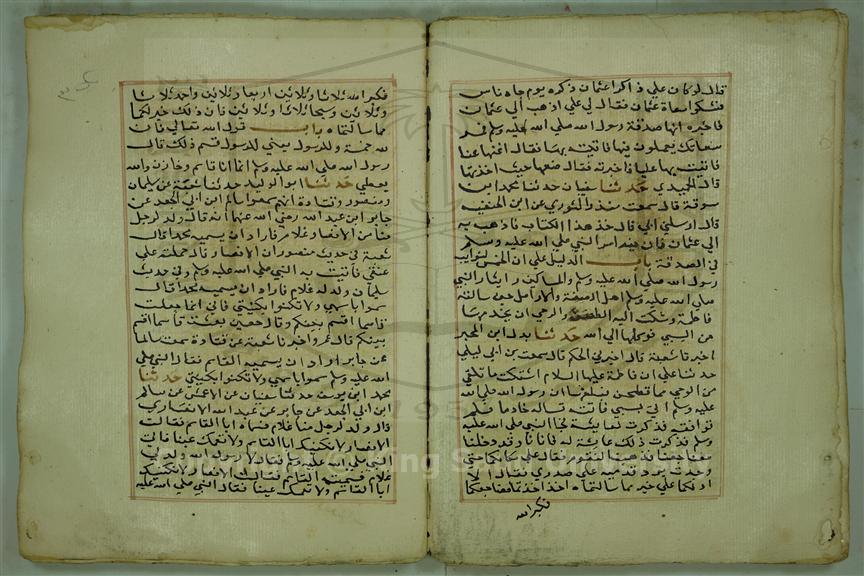 قال لو كان علي ذاكرا عثمان ذكره يوم جاه ناس
فشكوا سعاة عثمان فقال لي علي اذهب الي عثمان
فاخبره انها صدقة رسول الله صلي الله عليه وسلم فمر
سعاتك يعملون فيها فاتيته بها فقال اغنها عنا
فاتيت بها عليا فاخبرته فقال ضعها حيث اخذتها
قال الحميدي حدثنا سفيان حدثنا محمد ابن
سوقة قال سمعت منذرا الثوري عن ابن الحنفيه
قال ارسلني ابي قال خذ هذا الكتاب فاذهب به
الي عثمان فان فيه امر النبي صلي الله عليه وسلم
في الصدقة باب الدليل علي ان الخمس لنوايب
رسول الله صلي الله عليه وسلم والمساكين وايثار النبي
صلي الله عليه وسلم اهل الصفة والارامل حين سالته
فاطمة وشكت اليه الطحن والرحي ان يخدمها
من السبي فوكلها الي الله حدثنا بدل ابن المحبر
اخبرنا شعبة قال اخبرني الحكم قال سمعت بن ابي ليلي
حدثنا علي ان فاطمة عليها السلام اشتكت ما تلقي
من الرحي مما تطحن فبلغها ان رسول الله صلي الله
عليه وسلم اتي بسبي فاتته تساله خادما فلم
توافقه فذكرت لعايشة فجا النبي صلي الله عليه
وسلم فذكرت ذلك عايشة له فاتانا وقد دخلنا
مضاجعنا فذهبنا لنقوم فقال علي مكانكما حتي
وجدت برد قدميه علي صدري فقال الا
ادلكما علي خير مما سالتماه اذا اخذتما مضاجعكما
فكبرا الله
فكبرا الله ثلاثا وثلاثين اربعا وثلاثين واحمدا ثلاثا
وثلاثين وسبحا ثلاثا وثلاثين فان ذلك خير لكما
مما سالتماه باب قول الله تعالي فان
لله خمسه وللرسول يعني للرسول قسم ذلك قال
رسول الله صلي الله عليه وسلم انما انا قاسم وخازن والله
يعطي حدثنا ابو الوليد حدثنا شعبة عن سليمان
ومنصور وقتادة انهم سمعوا سالم ابن ابي الجعد عن
جابر ابن عبد الله رضي الله عنهما انه قال ولد لرجل
منا من الانصار غلام فاراد ان يسميه محمدا قال
شعبة في حديث منصور ان الانصاري قال حملته علي
عنقي فاتيت به النبي صلي الله عليه وسلم وفي حديث
سليمان ولد له غلام فاراد ان يسميه محمدا قال
سموا باسمي ولا تكنوا بكنيتي فاني انما جعلت
قاسما اقسم بينكم وقال حصين بعثت قاسما اقسم
بينكم قال عمرو اخبرنا شعبة عن قتادة سمعت سالما
عن جابر اراد ان يسميه القاسم فقال النبي صلي
الله عليه وسلم سموا باسمي ولا تكنوا بكنيتي حدثنا
محمد ابن يوسف حدثنا سفيان عن الاعمش عن سالم
ابن ابي الجعد عن جابر عن عبد الله الانصاري
قال ولد لرجل منا غلام فسماه ابا القاسم فقالت
الانصار لا نكنيك ابا القاسم ولا ننعمك عينا فاتي
النبي صلي الله عليه وسلم فقال يا رسول الله ولد لي
غلام فسميته القاسم فقالت الانصار لا نكنيك
ابا القاسم ولا ننعمك عينا فقال النبي صلي الله عليه